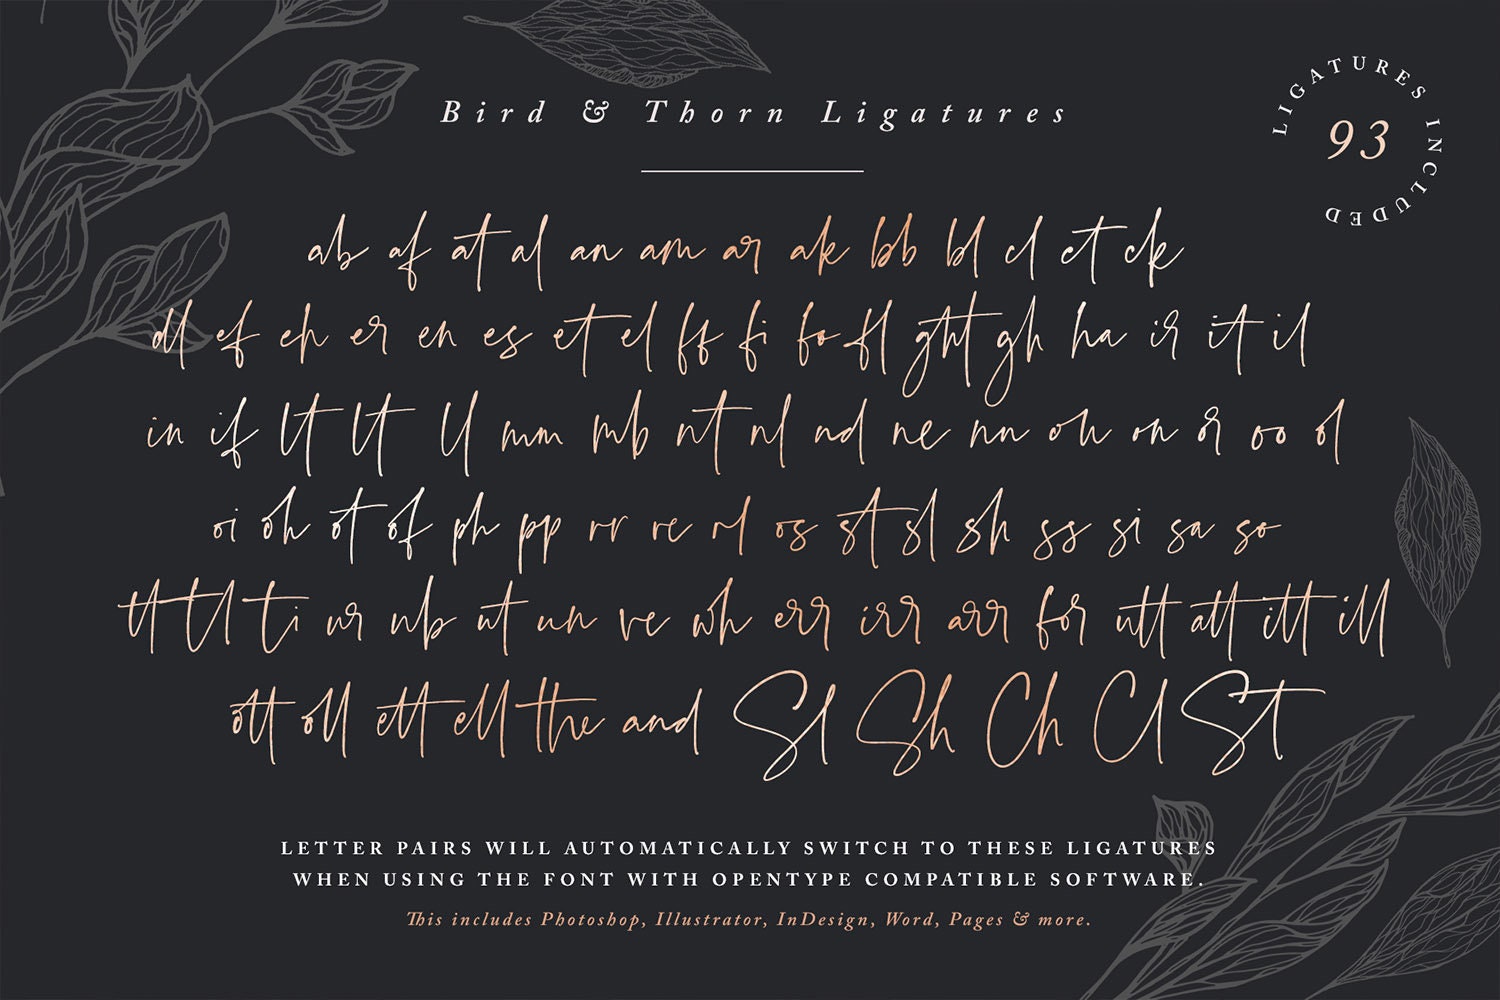 Bird & Thorn Ligatures
LIGATURES INCLUDED
93
ab af at al an am ar ak bb bl cl ct ck
dl ef eh er en es et el ff fi fo fl ght gh ha ir it il
in if lt lt ll mm mb nt nl nd ne nn oh on or oo ol
oi oh ot of ph pp rr re rl os st sl sh ss si sa so
tt tl ti ur ub ut un ve wh err irr arr for utt att itt ill
ott oll ett ell the and Sl Sh Ch Cl St
LETTER PAIRS WILL AUTOMATICALLY SWITCH TO THESE LIGATURES
WHEN USING THE FONT WITH OPENTYPE COMPATIBLE SOFTWARE.
This includes Photoshop, Illustrator, InDesign, Word, Pages & more.